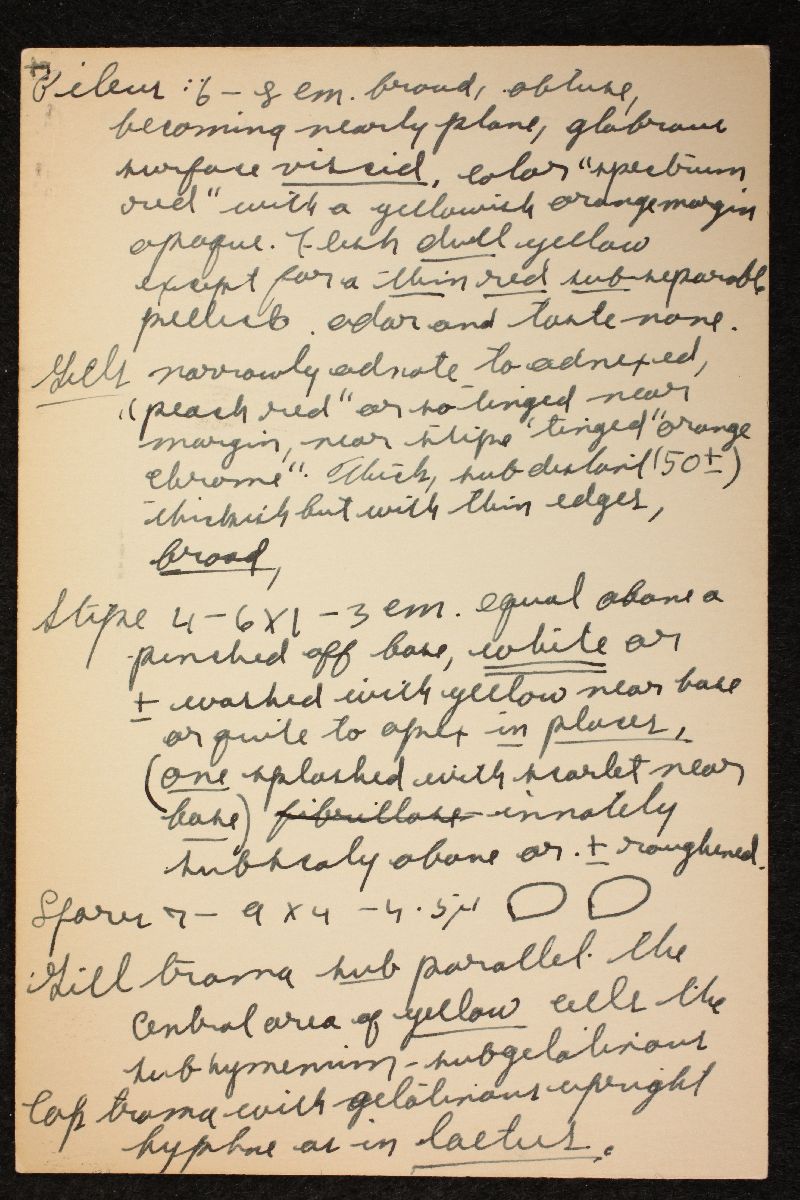 Pileus: 6 - 8 cm. broad, obtuse,
becoming nearly plane, glabrous
surface viscid, color "spectrum
red" with a yellowish orange margin
opaque. Flesh dull yellow
except for a thin red sub-separable
pellicle. odor and taste none.
Gills narrowly adnate to adnexed,
"peach red" or so tinged near
margin, near stipe tinged "orange
chrome". Thick, subdistant (50±)
thickish but with thin edges,
broad,
Stipe 4 - 6 X 1 - 3 cm. equal above a
pinched off base, white or
± washed with yellow near base
or quite to apex in places,
(one splashed with scarlet near
base) fibrillose innately
subscaly above or ± roughened.
Spores 7 - 9 X 4 - 4.5µ
Gill trama sub parallel. the
central area of yellow cells the
subhymenium - subgelatinous
Cap trama with gelatinous upright
hyphae as in laetus.